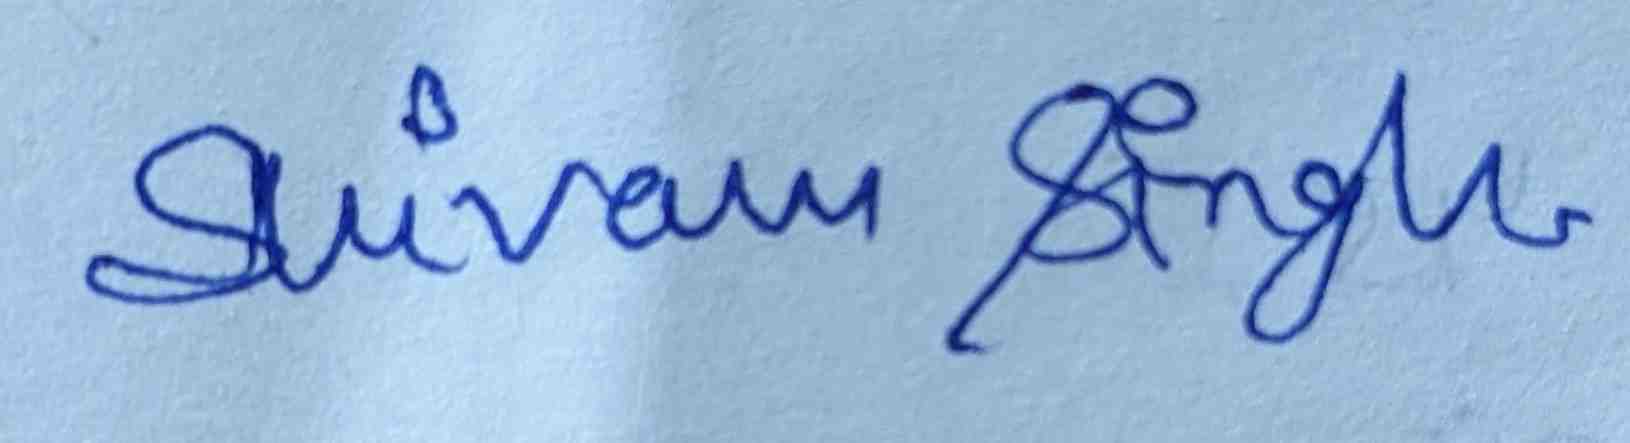 Shivam Singh